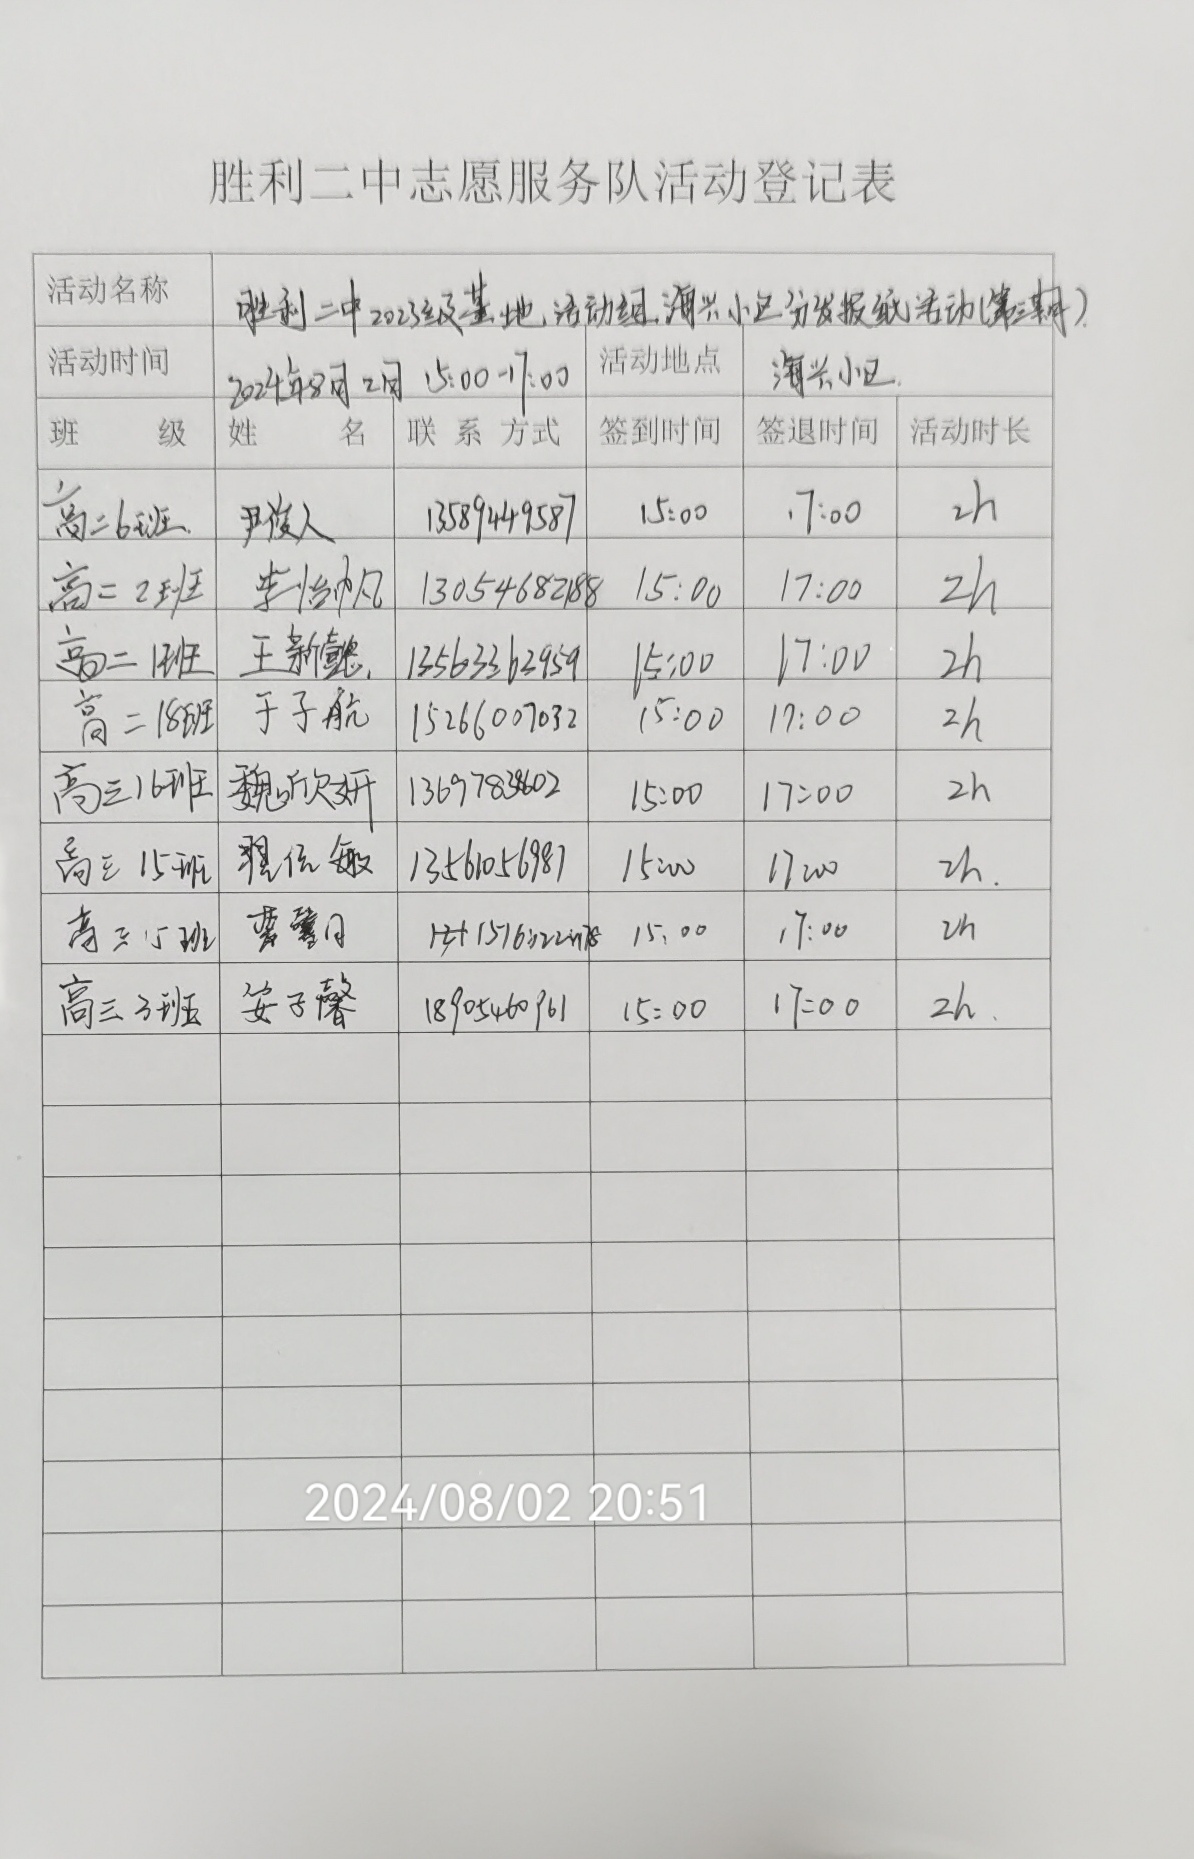 胜利二中志愿服务队活动登记表
活动名称 胜利二中2023级基地活动组海兴小区分发报纸活动(第三期)
活动时间 2024年8月2日 15:00-17:00 活动地点 海兴小区.
班 级 姓 名 联 系 方式 签到时间 签退时间 活动时长
高二6班. 尹俊人 13589449587 15:00 17:00 2h
高二2班 李怡帆 13054682188 15:00 17:00 2h
高二1班 王新懿. 13563362959 15:00 17:00 2h
高二18班 于子航 15266007032 15:00 17:00 2h
高三16班 魏欣妍 13697783602 15:00 17:00 2h
高三15班 敏 13561056987 15:00 17:00 2h.
高三15班 15:00 17:00 2h
高三3班 安子馨 18905460961 15:00 17:00 2h.
2024/08/02 20:51